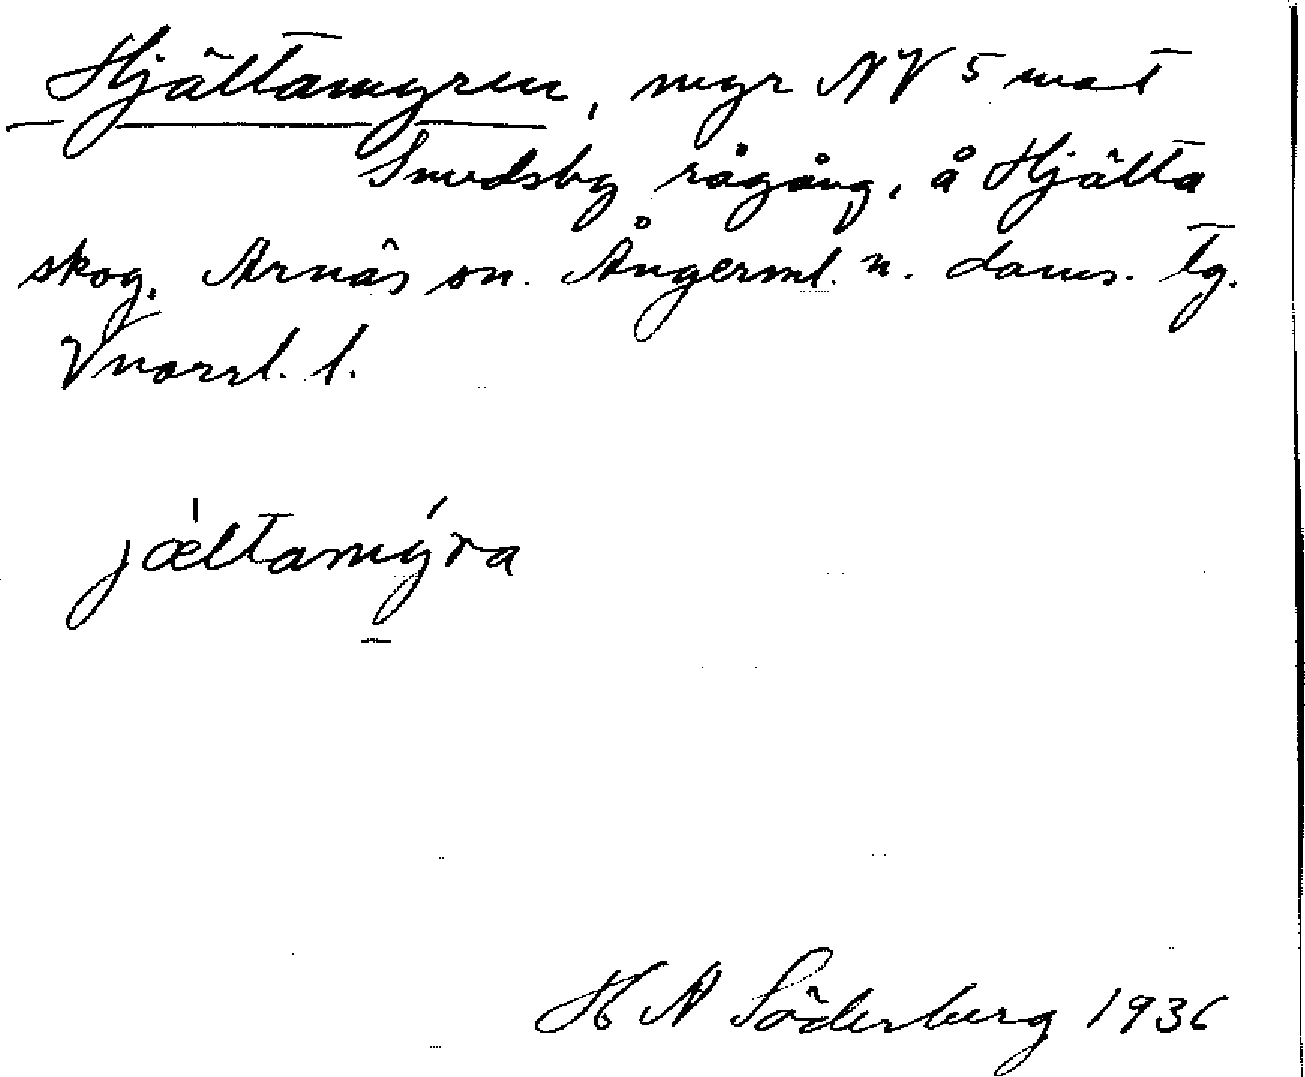 Hjältamyren, myr NV 5 mot
Smedsby rågång, å Hjälta
skog. Arnäs sn. Ångerml. n. doms. tg.
Vnorrl. l.
jæ̀ltamýra
H N Söderberg 1936